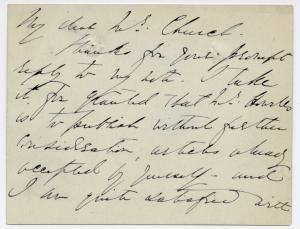 My dear Mr. Church.
Thanks for your prompt
reply to my note. I take
it for granted that Mr.
is to publish without further
consideration, as he is already
accepted of yourself - and
I am quite satisfied with